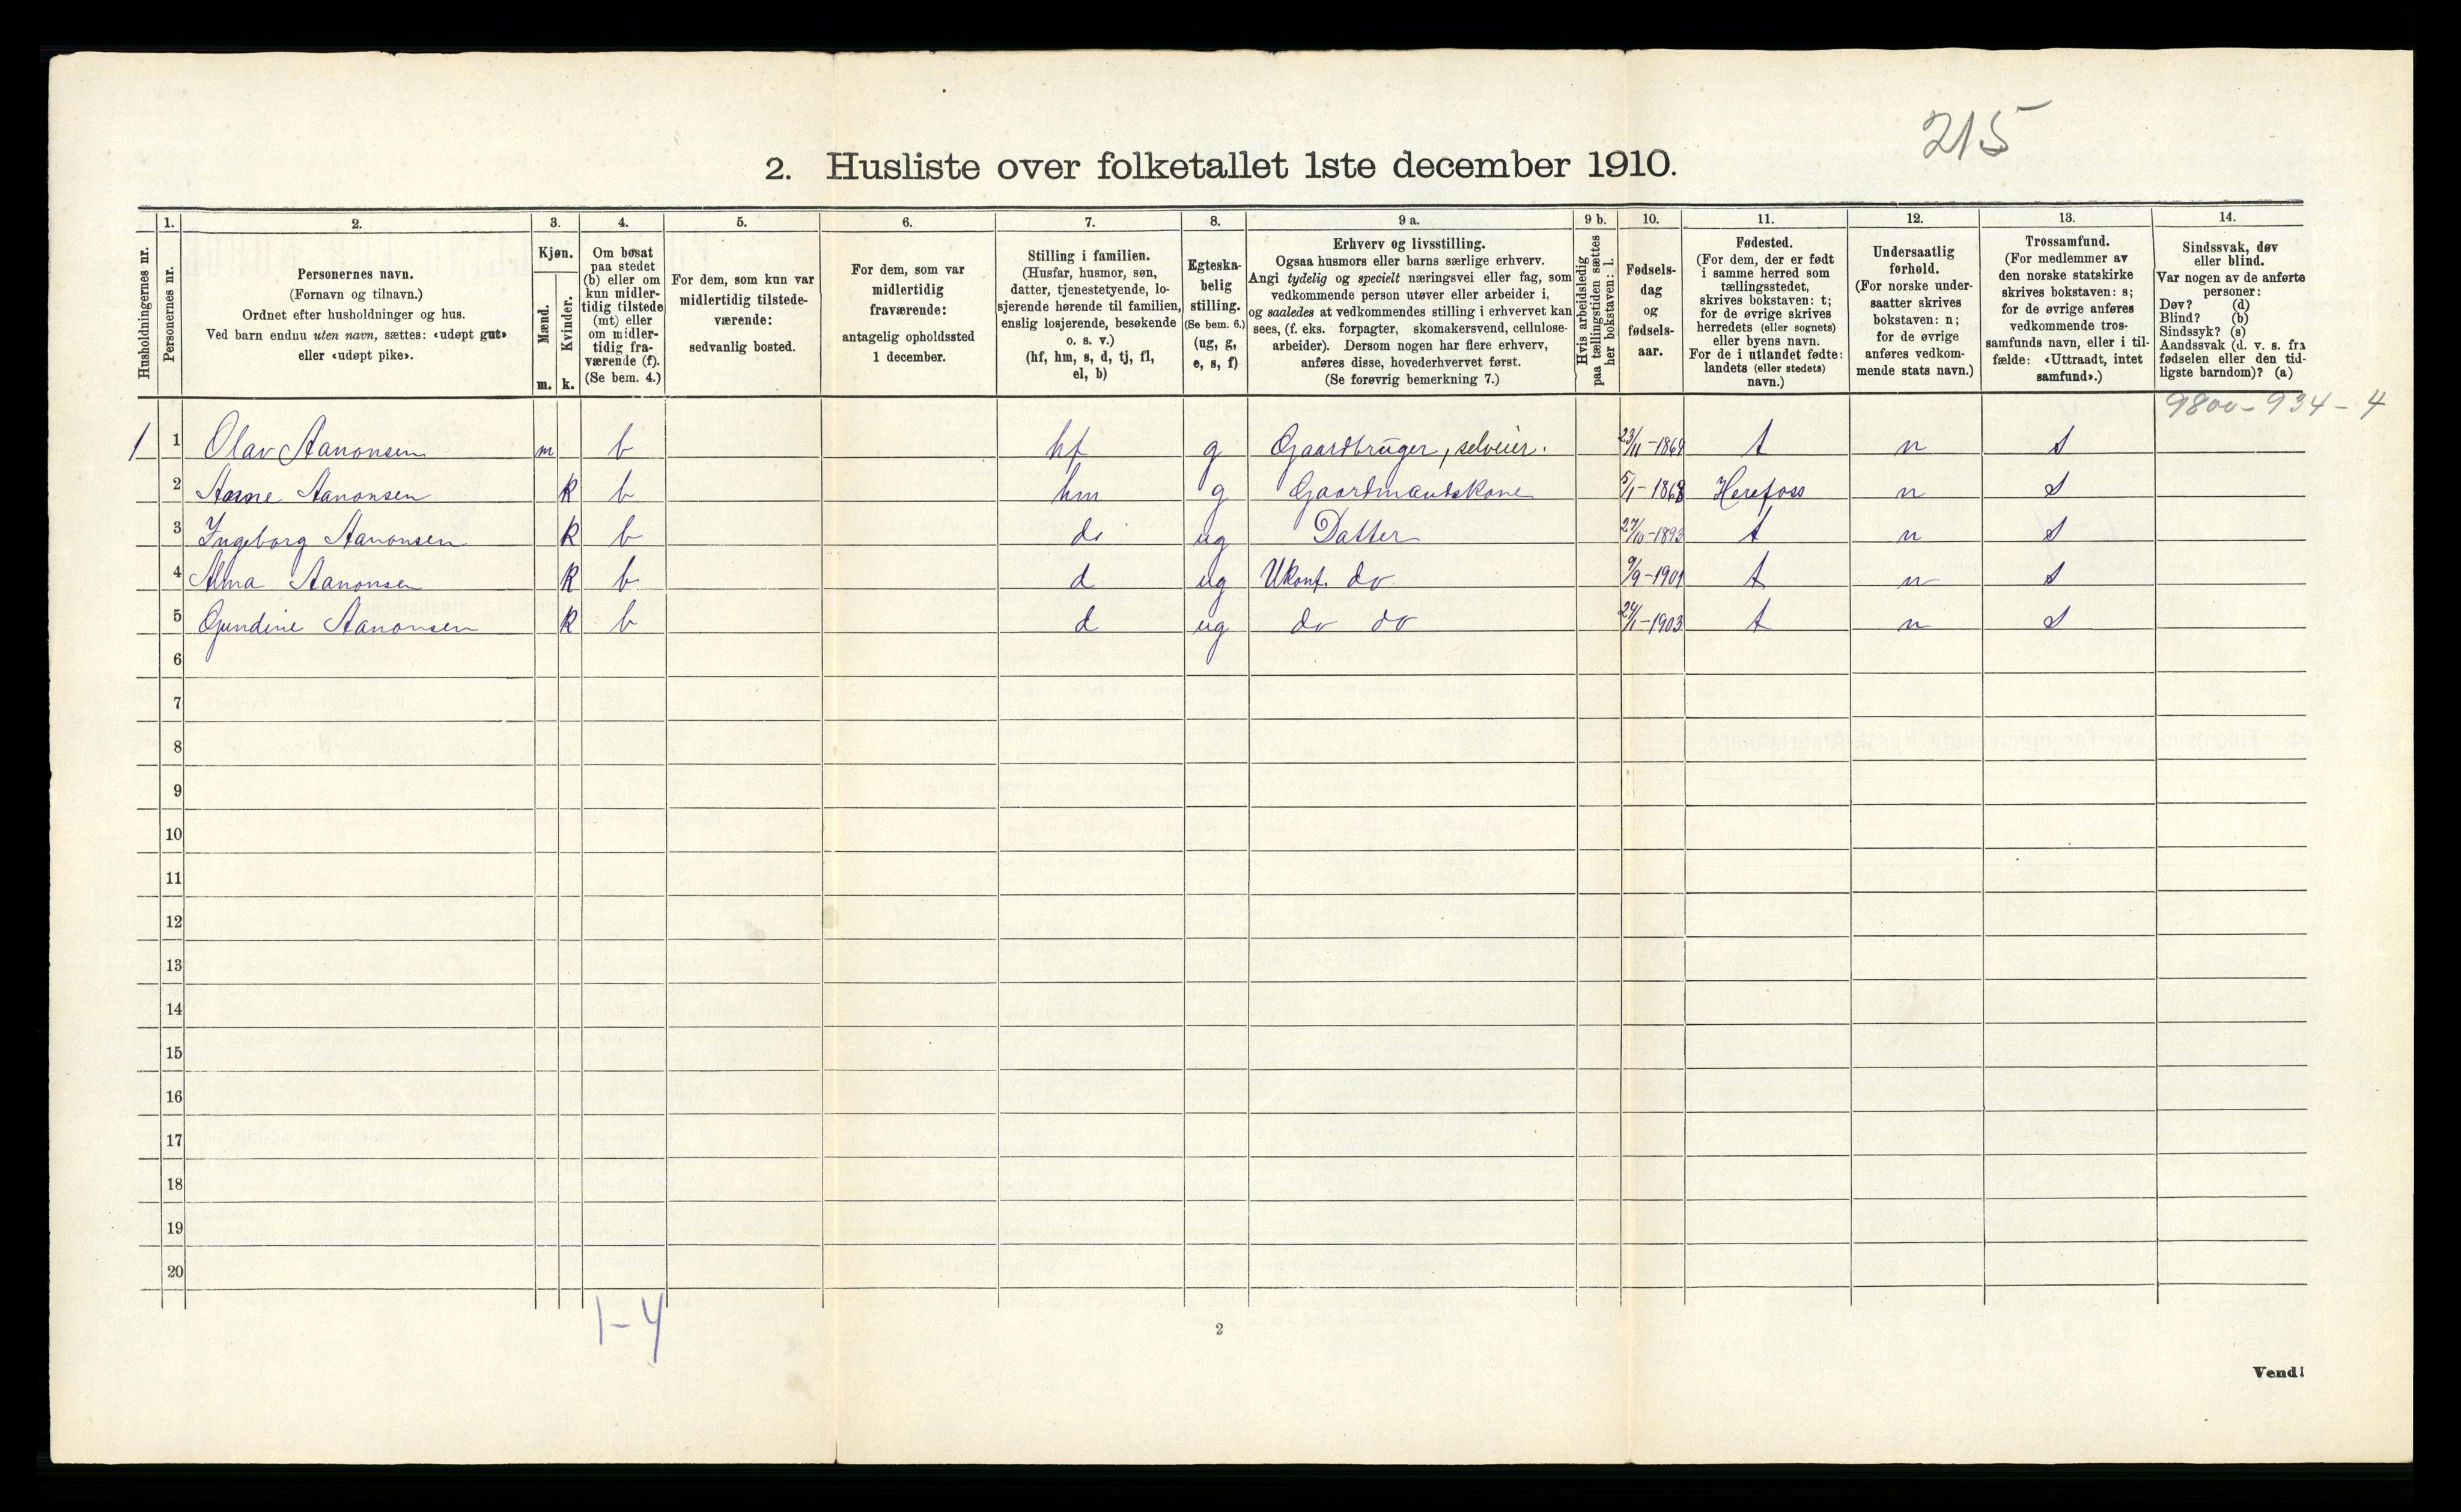 215
2. Husliste over folketallet 1ste december 1910.
Husholdningernes nr.
1.
Personernes nr.
2.
Personernes navn.
(Fornavn og tilnavn.)
Ordnet efter husholdninger og hus.
Ved barn endnu uten navn, sættes: «udøpt gut»
eller «udøpt pike».
3.
Kjøn.
Mænd.
m.
Kvinder.
k.
4.
Om bosat
paa stedet
(b) eller om
kun midler-
tidig tilstede
(mt) eller
om midler-
tidig fra-
værende (f).
(Se bem. 4.)
5.
For dem, som kun var
midlertidig tilstede-
værende:
sedvanlig bosted.
6.
For dem, som var
midlertidig
fraværende:
antagelig opholdssted
1 december.
7.
Stilling i familien.
(Husfar, husmor, søn,
datter, tjenestetyende, lo-
sjerende hørende til familien,
enslig losjerende, besøkende
o. s. v.)
(hf, hm, s, d, tj, fl,
el, b)
8.
Egteska-
belig
stilling.
(Se bem. 6.)
(ug, g,
e, s, f)
9 a.
Erhverv og livsstilling.
Ogsaa husmors eller barns særlige erhverv.
Angi tydelig og specielt næringsvei eller fag, som
vedkommende person utøver eller arbeider i,
og saaledes at vedkommendes stilling i erhvervet kan
sees, (f. eks. forpagter, skomakersvend, cellulose-
arbeider). Dersom nogen har flere erhverv,
anføres disse, hovederhvervet først.
(Se forøvrig bemerkning 7.)
9 b.
Hvis arbeidsledig
paa tællingstiden sættes
her bokstaven: l.
10.
Fødsels-
dag
og
fødsels-
aar.
11.
Fødested.
(For dem, der er født
i samme herred som
tællingsstedet,
skrives bokstaven: t;
for de øvrige skrives
herredets (eller sognets)
eller byens navn.
For de i utlandet fødte:
landets (eller stedets)
navn.)
12.
Undersaatlig
forhold.
(For norske under-
saatter skrives
bokstaven: n;
for de øvrige
anføres vedkom-
mende stats navn.)
13.
Trossamfund.
(For medlemmer av
den norske statskirke
skrives bokstaven: s;
for de øvrige anføres
vedkommende tros-
samfunds navn, eller i til-
fælde: «Uttraadt, intet
samfund».)
14.
Sindssvak, døv
eller blind.
Var nogen av de anførte
personer:
Døv? (d)
Blind? (b)
Sindssyk? (s)
Aandssvak (d. v. s. fra
fødselen eller den tid-
ligste barndom)? (a)
9800-934-4
1 1 Olav Aanonsen m b hf g Gaardbruger, selveier. 23/11-1869 t n s
2 Aasne Aanonsen k b hm g Gaardmandskone 5/1-1868 Herefoss n s
3 Ingeborg Aanonsen k b d. ug Datter 27/10-1893 t n s
4 Alma Aanonsen k b d ug Ukonf. do 9/9-1901 t n s
5 Gundine Aanonsen k b d ug do do 24/1-1903 t n s
6
7
8
9
10
11
12
13
14
15
16
17
18
19
20
1-4
2
Vend!